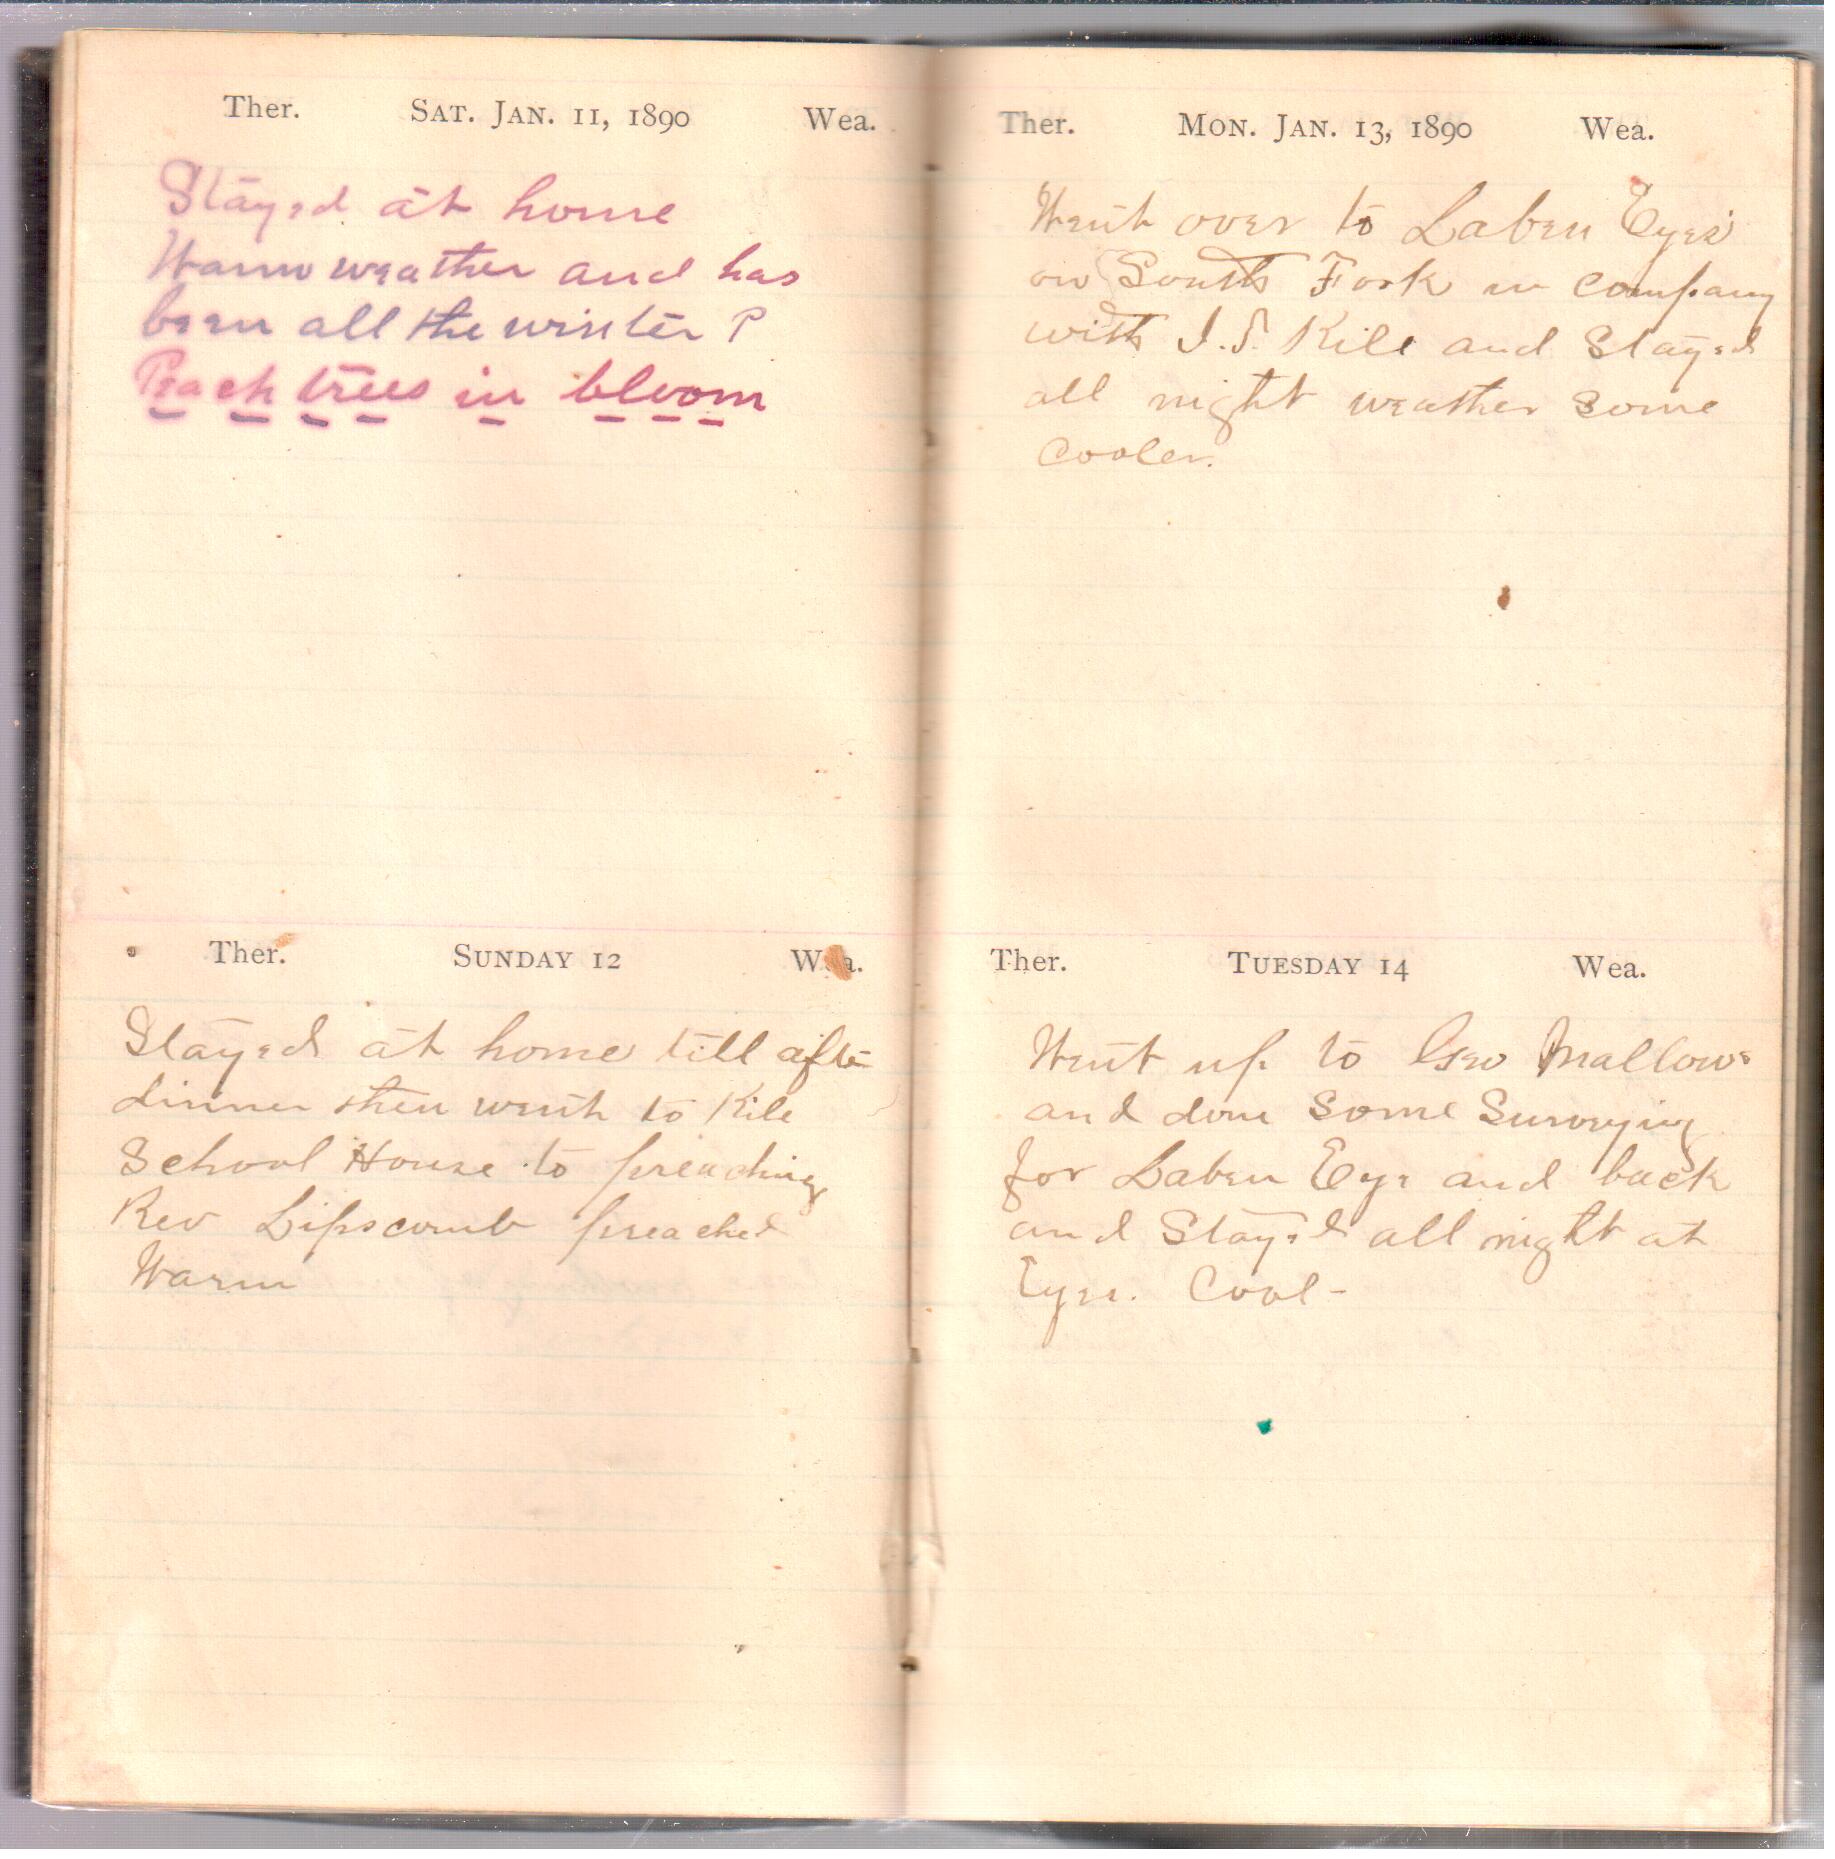 Ther. SAT. JAN. 11, 1890 Wea.
Stayed at home
Warm weather and has
been all the winter P
Peach trees in bloom
Ther. SUNDAY 12 Wea.
Stayed at home till after
dinner then went to Kile
School House to preaching
Rev Lipscomb preached
Warm
Ther. MON. JAN. 13, 1890 Wea.
Went over to Laben Eyes'
on South Fork in company
with I.S. Kile and Stayed
all night weather some
cooler.
Ther. TUESDAY 14 Wea.
Went up to Geo Mallows
and done some Surveying
for Laben Eye and back
and Stayed all night at
Eyes. Cool-